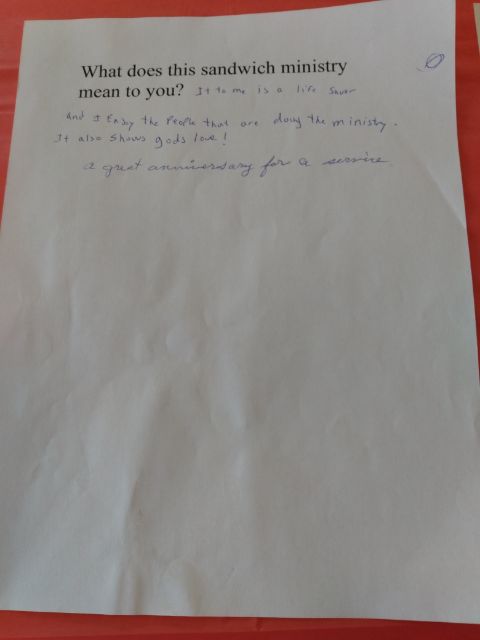 What does this sandwich ministry
mean to you? It to me is a life Saver
And I Enjoy the People that are doing the ministry.
It also Shows gods love!
a great anniversary for a service